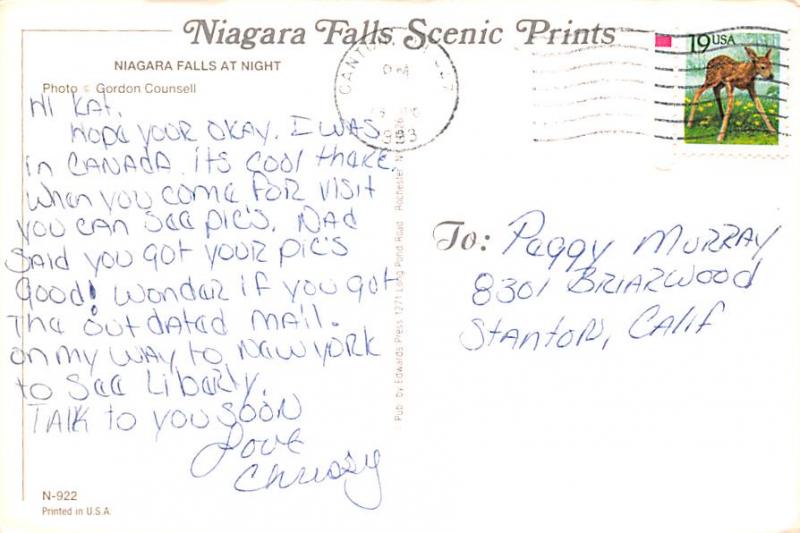 Niagara Falls Scenic Prints
NIAGARA FALLS AT NIGHT
Photo © Gordon Counsell
Hi Kat,
Hope your okay. I was
in Canada. Its cool there.
When you come for visit
you can see pic's. Dad
said you got your pic's
Good! Wonder if you got
The out dated mail.
on my way to New York
to see Liberty.
Talk to you soon
Love
Chrissy
N-922
Printed in U.S.A.
Pub. by Edwards Press 1271 Long Pond Road Rochester
CANTON
PM
19 USA
To: Peggy Murray
8301 Briarwood
Stanton, Calif